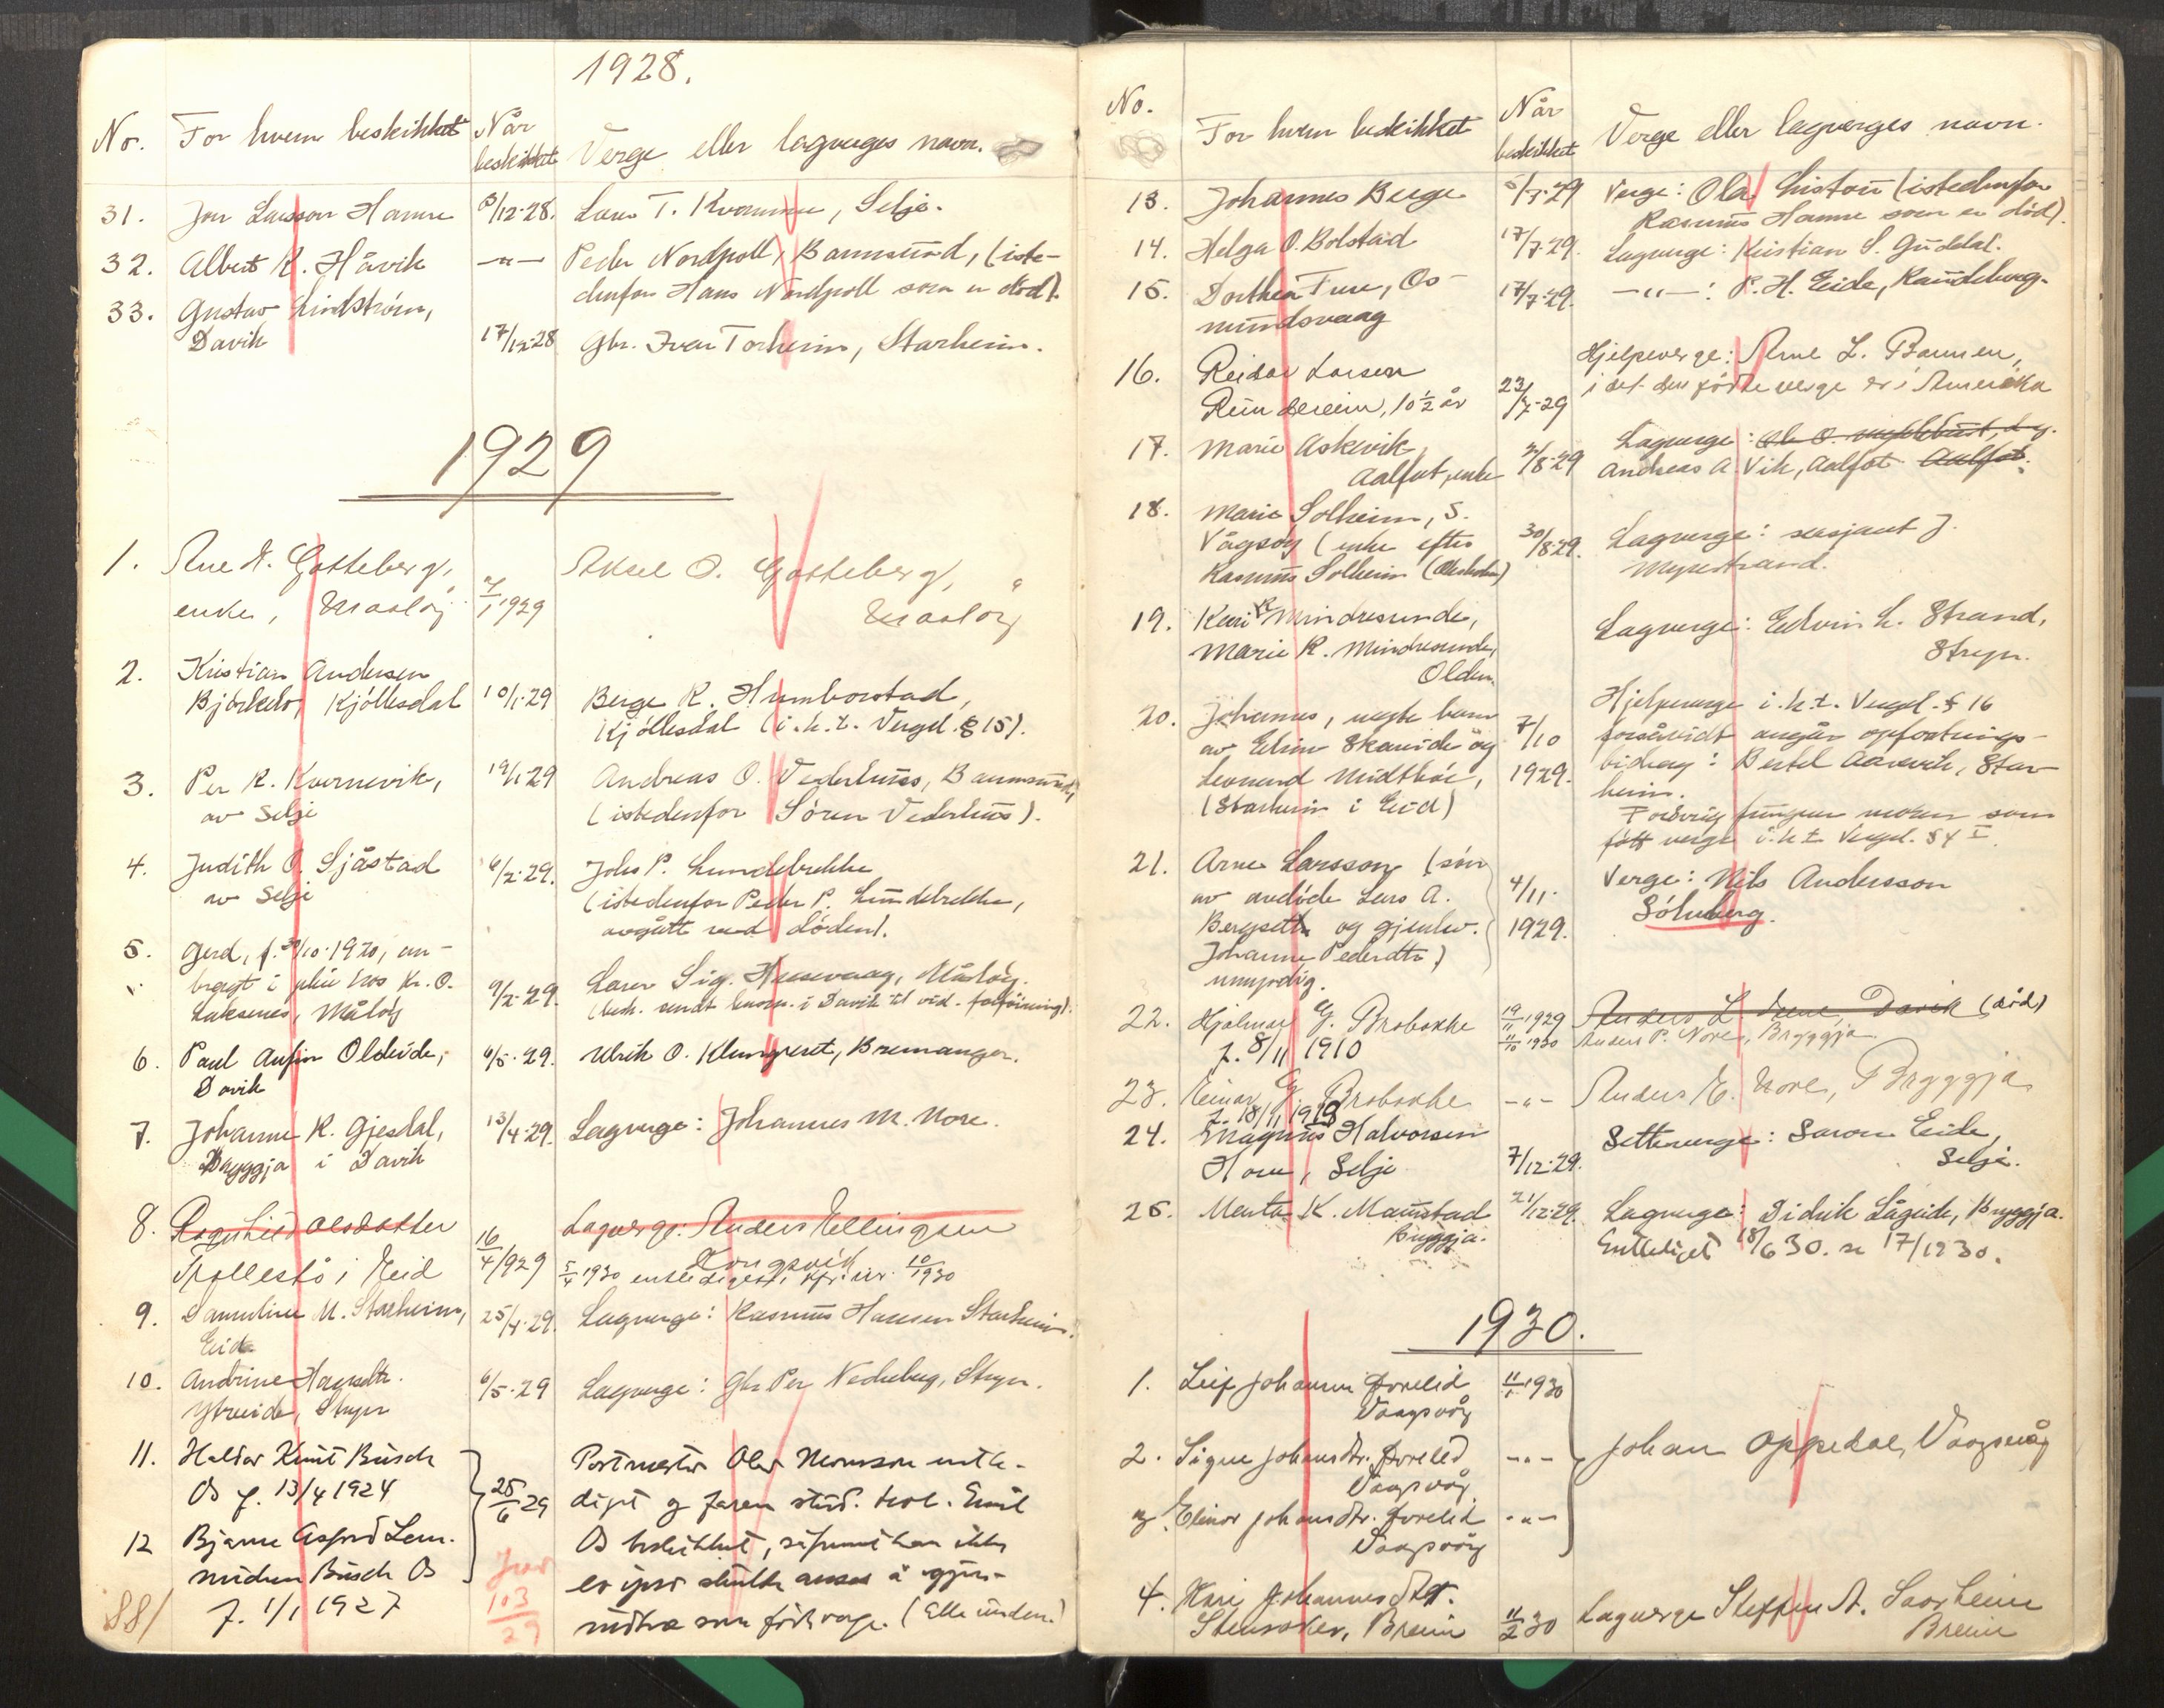 1928.
No. For hvem beskikket Når beskikket Verge eller lagverges navn.
31. Jon Larsson Hamre 3/12-28. Lars T. Kvamme, Selje.
32. Albert K. Håvik —"— Peder Nordpoll, Barmsund, (iste-
denfor Hans Nordpoll som er død).
33. Gustav Lindstrøm,
Davik 17/12-28 Gbr. Ivar Torheim, Starheim.
1929
1. Ane A. Gotteberg, Aksel O. Gotteberg,
enke, Maaløy 2/1 1929 Maaløy
2. Kristian Andersen
Bjørkelo, Kjøllesdal 10/1-29 Berge R. Humborstad,
Kjøllesdal (i.h.t. Vergel. § 15).
3. Per R. Kvernevik, 19/1-29 Andreas O. Vederhus, Barmsund,
av Selje (istedenfor Søren Vederhus).
4. Judith O. Sjåstad 6/2-29. Johs P. Lundebrekke
av Selje (istedenfor Peder P. Lundebrekke,
avgått ved døden).
5. Gerd, f. /10-1920, an-
bragt i pleie hos Kr. O. 9/2-29. Lars Sig. Husevaag, Måløy.
Måløy (besk. sendt i Davik til vid. forføining).
6. Paul Anfin Oldeide, 6/5-29. Ulrik O. Klungreset, Bremanger.
Davik
7. Johanne K. Gjesdal, 13/4-29. Lagverge: Johannes M. Nore.
Bryggja i Davik
8. Ragnhild Olsdatter Lagverge: Anders Ellingsen
i Eid 16/4 1929 Kongsvik
5/4 1930 entlediget, kfr. nr. 10/1930
9. M. Starheim, 25/4-29. Lagverge: Rasmus Hansen Starheim.
Eid
10. Andrine Hansdtr.
Ytreeide, Stryn 6/5-29 Lagverge: Gbr Per Nedreberg, Stryn.
11. Haldor Knut Busch Postmester Olav Monsson entle-
Os f. 13/4 1924 25/6 29 diget og faren stud. teol. Emil
12 Bjarne Asfred Os beskikket, såfremt han ikke
Busch Os eo ipso skulde anses å
f. 1/1 1927 som født verge. (
Jnr 103/29
88/
No. For hvem beskikket Når beskikket Verge eller lagverges navn.
13. Johannes Berge 5/7-29 Verge: Ola (istedenfor
Rasmus Hamre som er død).
14. Helga O. Bolstad 17/7-29. Lagverge: Kristian S. Guddal.
15. Dorthea Fure, Os- 17/7-29. —"—: P. H. Eide, Raudeberg.
mundsvaag
16. Reidar Larsen Hjelpeverge: Arne L. Barmen,
10½ år 23/7-29 i det den fødte verge er i Amerika
17. Marie Askevik, Lagverge: Ole O. Myklebust, d.y.
Aalfot, enke 2/8-29 Andreas A. Vik, Aalfot Aalfot.
18. Marie Solheim, S.
Vågsøy (enke efter 30/8-29. Lagverge: sersjant J.
Rasmus Solheim ( ) Myrestrand.
19. Kari R. Mindresunde, Lagverge: Edvin L. Strand,
Marie R. Mindresunde, Stryn.
Olden.
20. Johannes, uegte barn 7/10 1929. Hjelpeverge i.h.t. Vergel. § 16
av Elin og forsåvidt angår opfostrings-
Leonard Midthår, bidrag: Bertel Aarevik, Star-
(Starheim i Eid) heim.
Forøvrig fungerer moren som
født verge i.h.t. Vergel. § 4 I.
21. Arne Larsson (søn 4/11- 1929. Verge: Nils Andersson
av avdøde Lars A. Sølvberg.
Bergset og gjenlev.
Johanne Pedersdtr.)
umyndig.
22. Hjalmar G. Brobakke 19/11 1929 Anders L. Davik (død)
f. 8/11 1910 11/10 1930 Anders P. Nore, Bryggja
23. Einar G. Brobakke —"— Anders E. Nore, Bryggja
f. 18/11 1918
24. Magnus Halvorsen Setteverge: Saron Eide,
Hove, Selje 7/12-29. Selje.
25. Menta K. Maurstad 21/12-29. Lagverge: Didrik Lågeide, Bryggja.
Bryggja. Entlediget 18/6 30. se 17/1930.
1930.
1. Leif Johansen Forelid 11/1 1930
Vaagsvåg
2. Signe Johansdtr. Forelid —"— Johan Oppedal, Vaagsvåg
Vaagsvåg
3. Elinor Johansdtr. Forelid —"—
Vaagsvåg
4. Kari Johannesdtr.
Breim 11/2 30 Lagverge Steffen A.
Breim